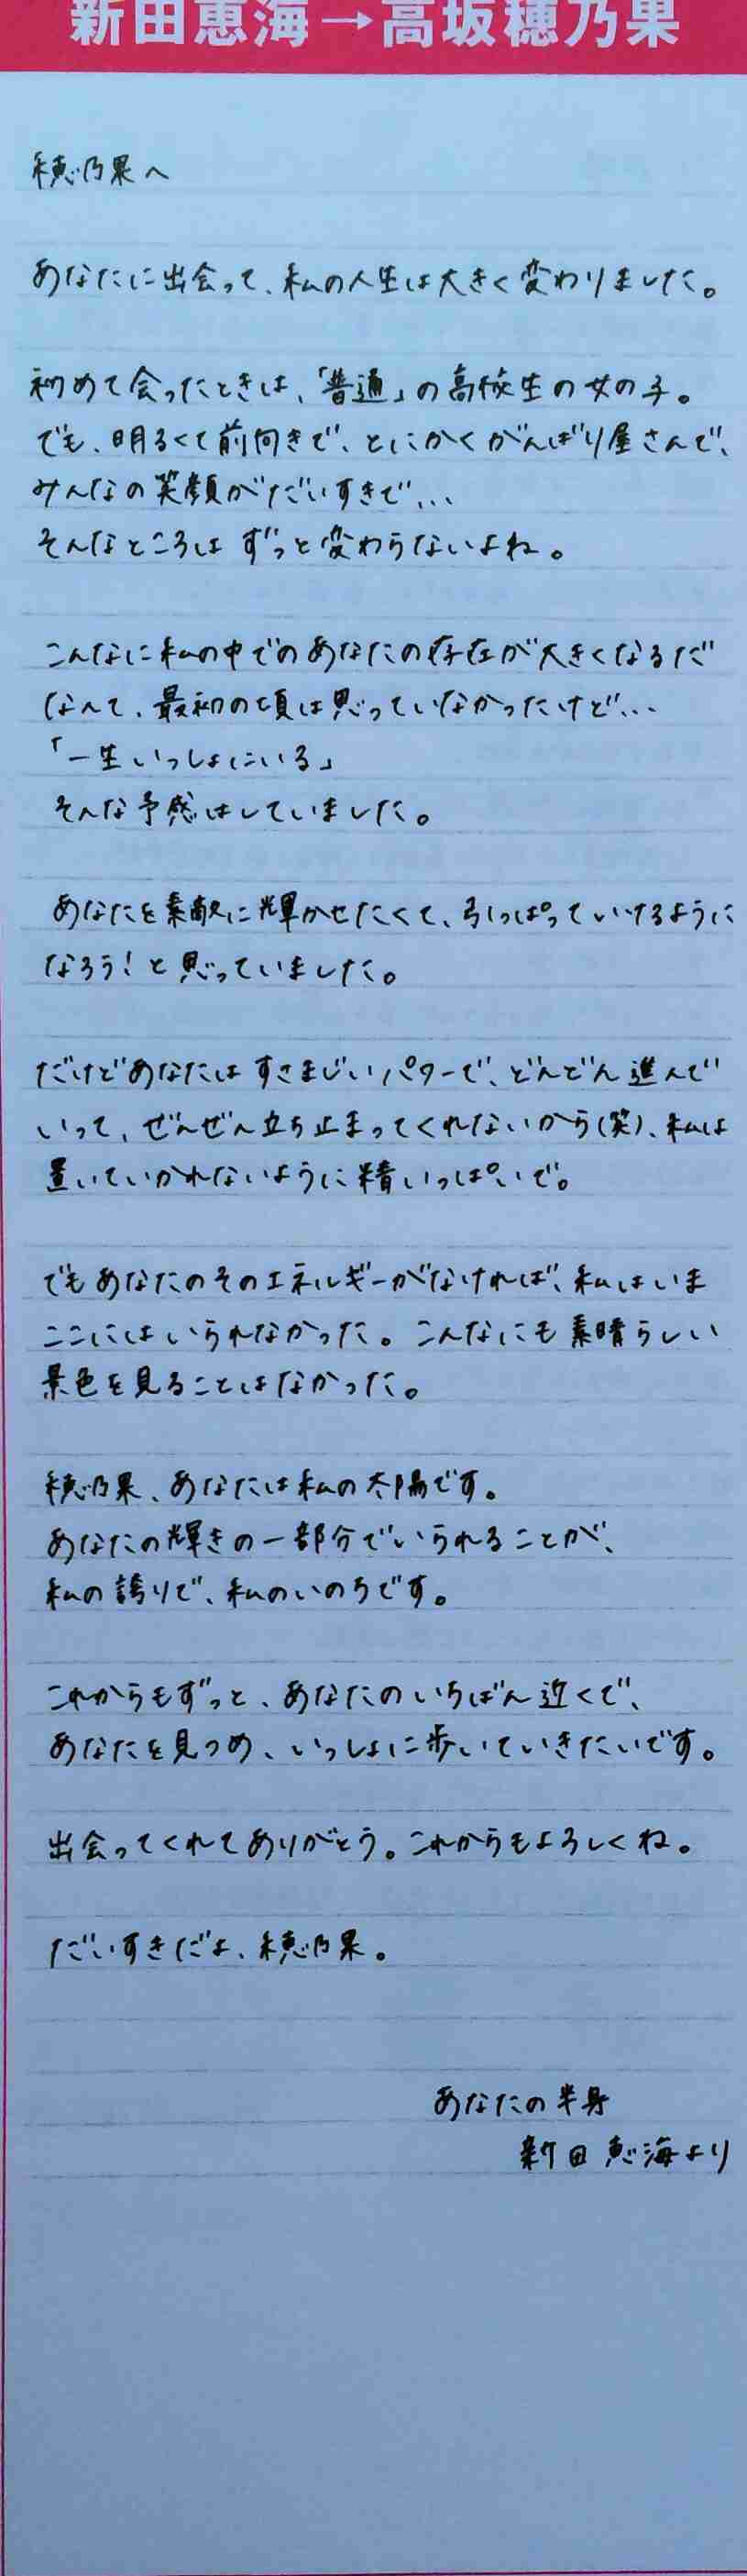 新田恵海→高坂穂乃果
穂乃果へ
あなたに出会って、私の人生は大きく変わりました。
初めて会ったときは、「普通」の高校生の女の子。
でも、明るくて前向きで、とにかくがんばり屋さんで、
みんなの笑顔がだいすきで…
そんなところはずっと変わらないよね。
こんなに私の中でのあなたの存在が大きくなるだ
なんて、最初の頃は思っていなかったけど…
「一生いっしょにいる」
そんな予感はしていました。
あなたを素敵に輝かせたくて、引っぱっていけるように
なろう!と思っていました。
だけどあなたはすさまじいパワーで、どんどん進んで
いって、ぜんぜん立ち止まってくれないから(笑)、私は
置いていかれないように精いっぱいで。
でもあなたのそのエネルギーがなければ、私はいま
ここにはいられなかった。こんなにも素晴らしい
景色を見ることはなかった。
穂乃果、あなたは私の太陽です。
あなたの輝きの一部分でいられることが、
私の誇りで、私のいのちです。
これからもずっと、あなたのいちばん近くで、
あなたを見つめ、いっしょに歩いていきたいです。
出会ってくれてありがとう。これからもよろしくね。
だいすきだよ、穂乃果。
あなたの半身
新田恵海より